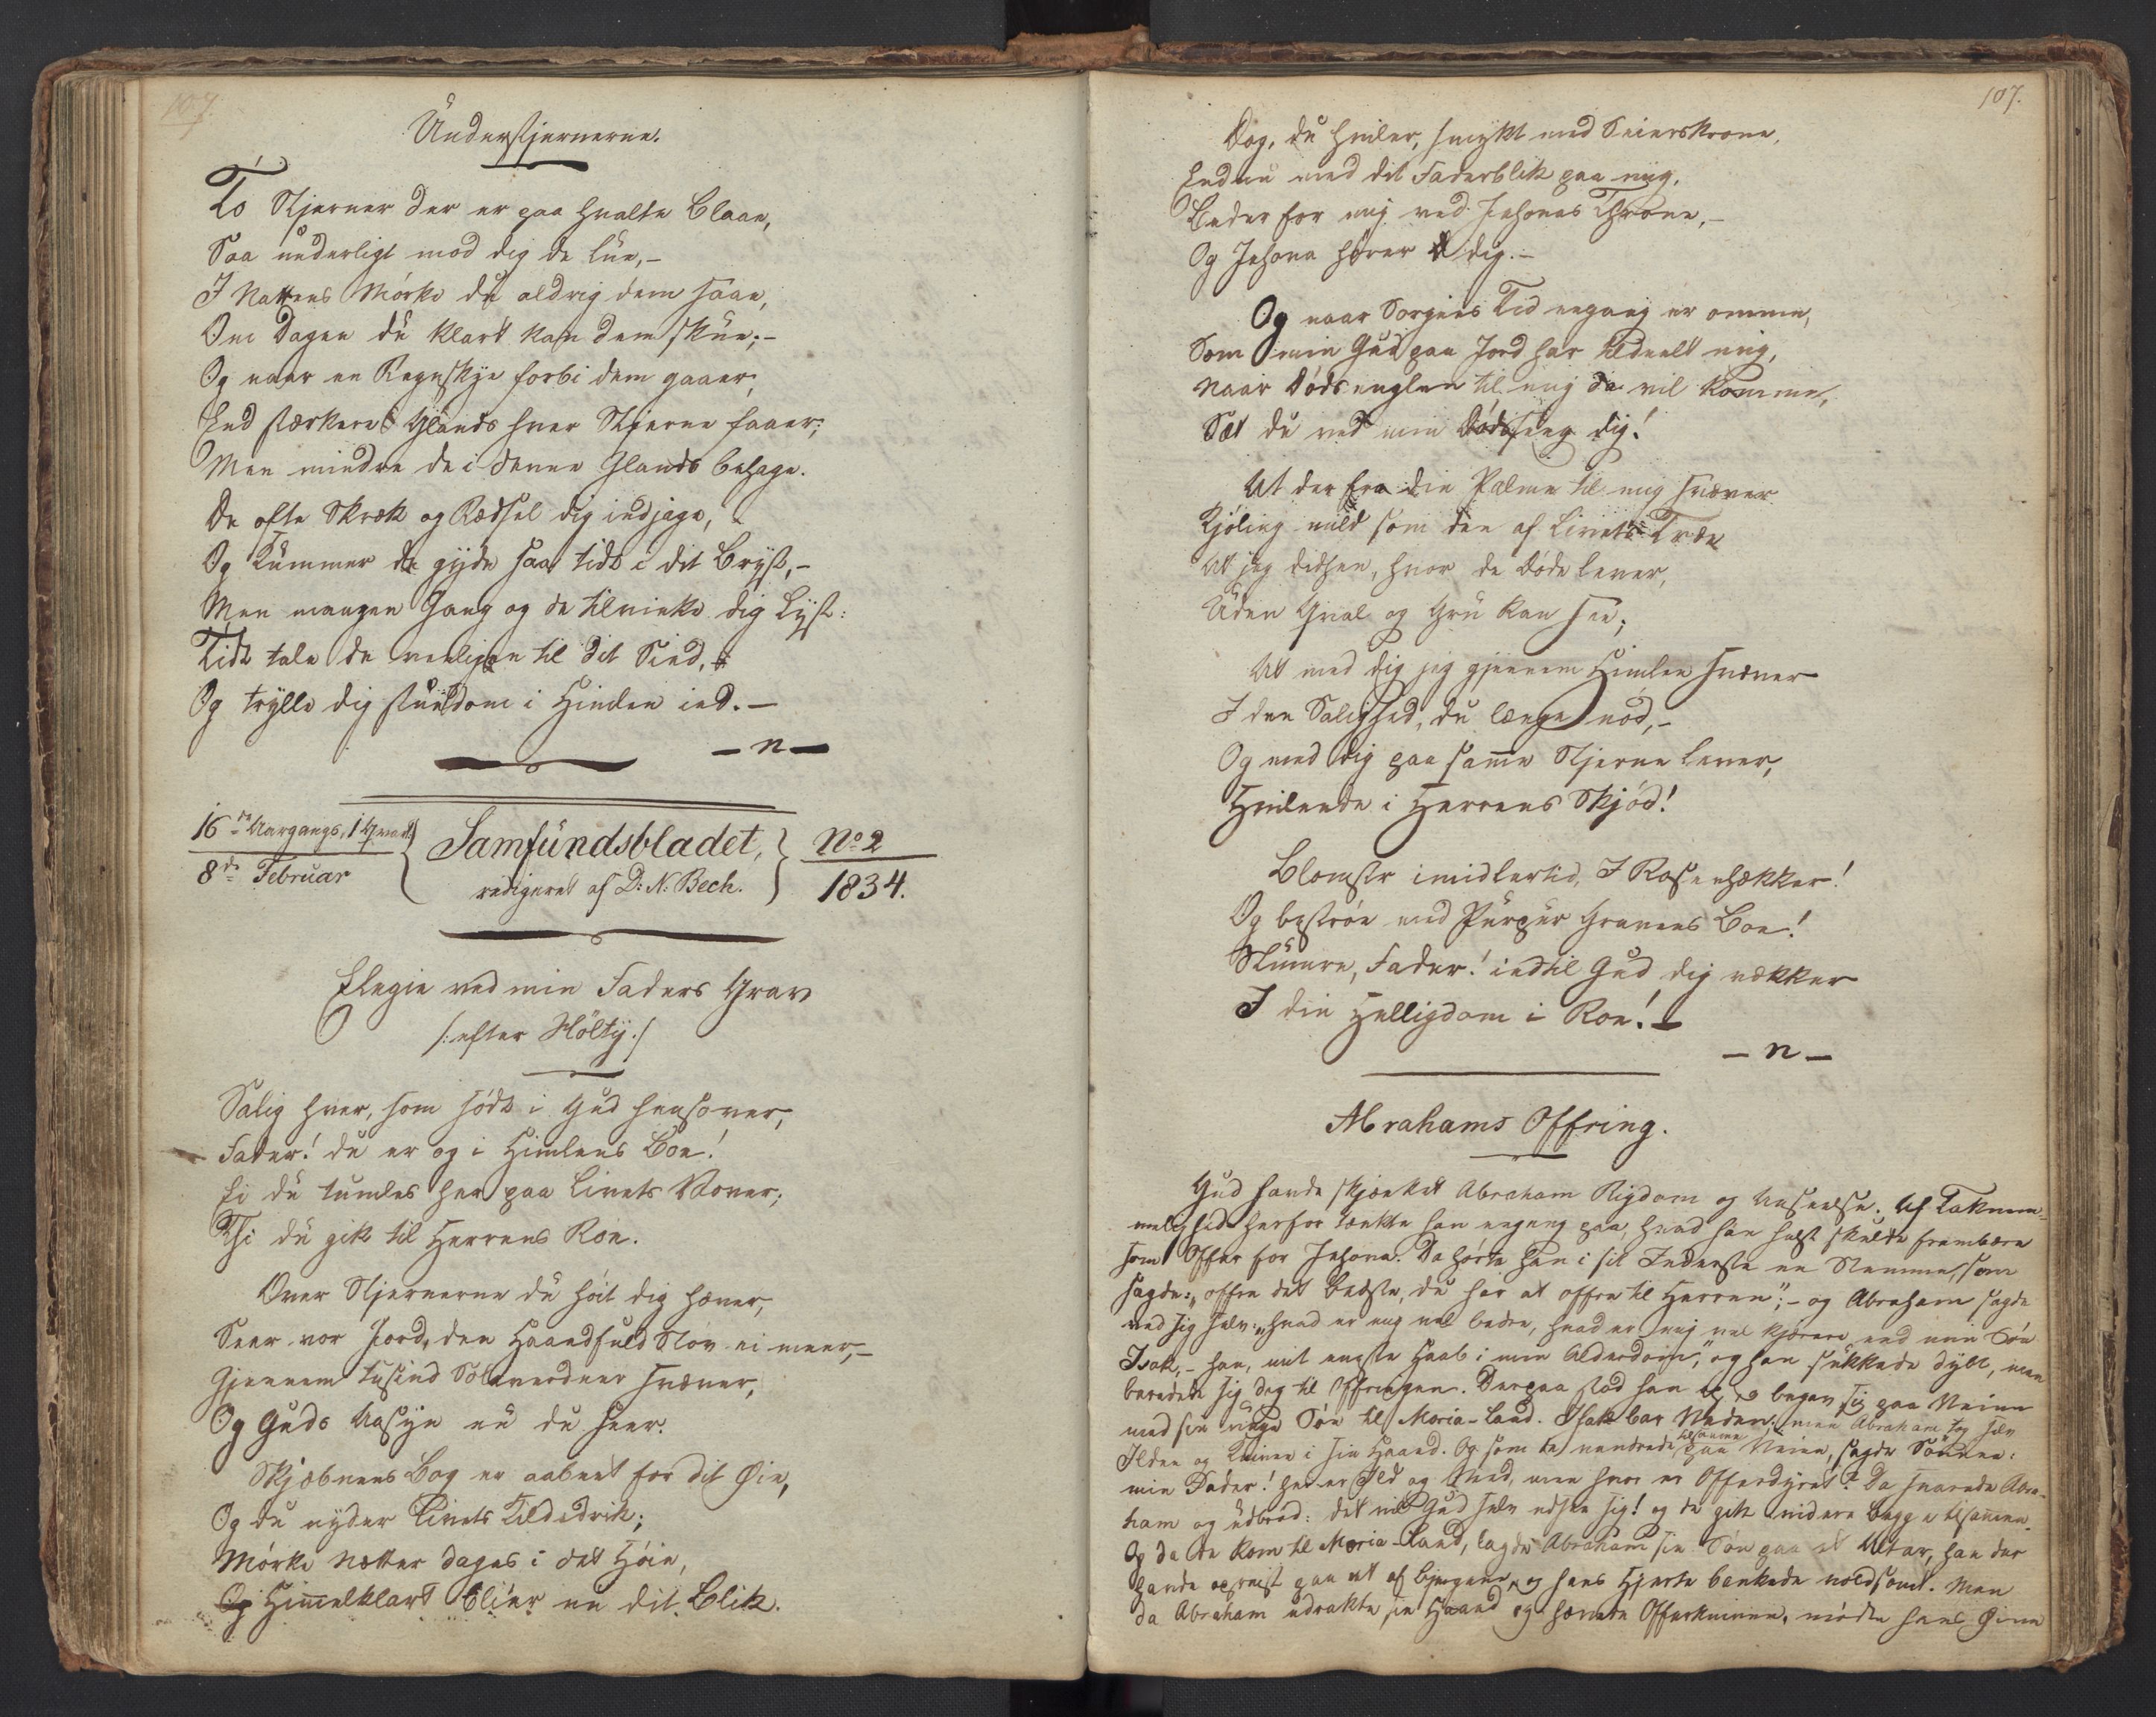 107.
Understjernerne.
To Stjerner der er paa hvalte Blaae,
Saa underligt mod dig de lue,—
I Nattens Mörke du aldrig dem saae,
Om Dagen du klart kan dem skue;—
Og naar en Regnskye forbi dem gaaer,
End stærkere Glands hver Stjerne faaer;
Men mindre de i denne Glands behage.
De ofte Skræk og Rædsel dig indjage,
Og Kummer de gyde saa tidt i dit Bryst,—
Men mangen Gang og de tilvinke dig Lyst:
Tidt tale de venligen til dit Sind,
Og trylle dig stundom i Himlen ind.—
— n —
16de Aargangs, 1 Qvart.
8de Februar
Samfundsbladet,
redigeret af D: N: Bech.
No 2
1834.
Elegie ved min Faders Grav
/: efter Hölty :/
Salig hver, som södt i Gud hensover,
Fader! du er og i Himlens Boe!
Ei du tumles her paa Livets Vover;
Thi du gik til Herrens Roe.
Over Stjernerne du höit dig hæver,
Seer vor Jord, den Haandfuld Stöv ei meer,—
Gjennem tusind Solverdner svæver,
Og Guds Aasyn nu du seer.
Skjæbnens Bog er aabnet for dit Øie,
Og du nyder Livets Kildedrik;
Mörke Nætter dages i det Höie,
Og Himmelklart bliver nu dit Blik.
107.
Dog, du hviler, smykt med Seierskrone,
Endnu med dit Faderblik paa mig,
Beder for mig ved Jehovas Throne,—
Og Jehova hörer dig.—
Og naar Sorgens Tid engang er omme,
Som min Gud paa Jord har tildeelt mig,
Naar Dödsenglen til mig da vil komme,
Sæt du ved min Dödsseng dig!
At der fra din Palme til mig svæver
Kjöling mild som den af Livets Træe
At jeg didhen, hvor de Döde lever,
Uden Qval og Gru kan see;
At med dig jeg gjennem Himlen svæver
I den Salighed, du længe nöd,—
Og med dig paa samme Stjerne lever,
Hvilende i Herrens Skjöd!
Blomstr imidlertid, I Rosenhækker!
Og beströe med Purpur Gravens Boe!
Slumre, Fader! indtil Gud dig vækker
I din Helligdom i Roe!—
— n —
Abrahams Offring.
Gud havde skjænket Abraham Rigdom og Anseelse. Af Taknem-
melighed herfor tænkte han engang paa, hvad han helst skulde frembære
som Offer for Jehova. Da hörte han i sit Inderste en Stemme, som
sagde: „offre det Bedste, du har at offre til Herren";— og Abraham sagde
ved sig selv: „hvad er mig vel bedre, hvad er mig vel kjærere end min Sön
Isak,— han, mit eneste Haab i min Alderdom," og han sukkede dybt, men
beredede sig dog til Offringen. Derpaa stod han op og begav sig paa Veien
med sin unge Sön til Moria-Land. Isak bar Veden, men Abraham tog selv
Ilden og Kniven i sin Haand. Og som de vandrede tilsamme paa Veien, sagde Sönnen:
min Fader! her er Ild og Ved, men hvor er Offerdyret? Da svarede Abra-
ham og udbröd: det vil Gud selv udsee sig! og de gik videre begge tilsammen.
Og da de kom til Moria-Land, lagde Abraham sin Sön paa et Altar, han der
havde opreist paa et af Bjergene, og hans Hjerte bankede voldsomt. Men
da Abraham udrakte sin Haand og hævede Offerkniven, mödte hans Øine